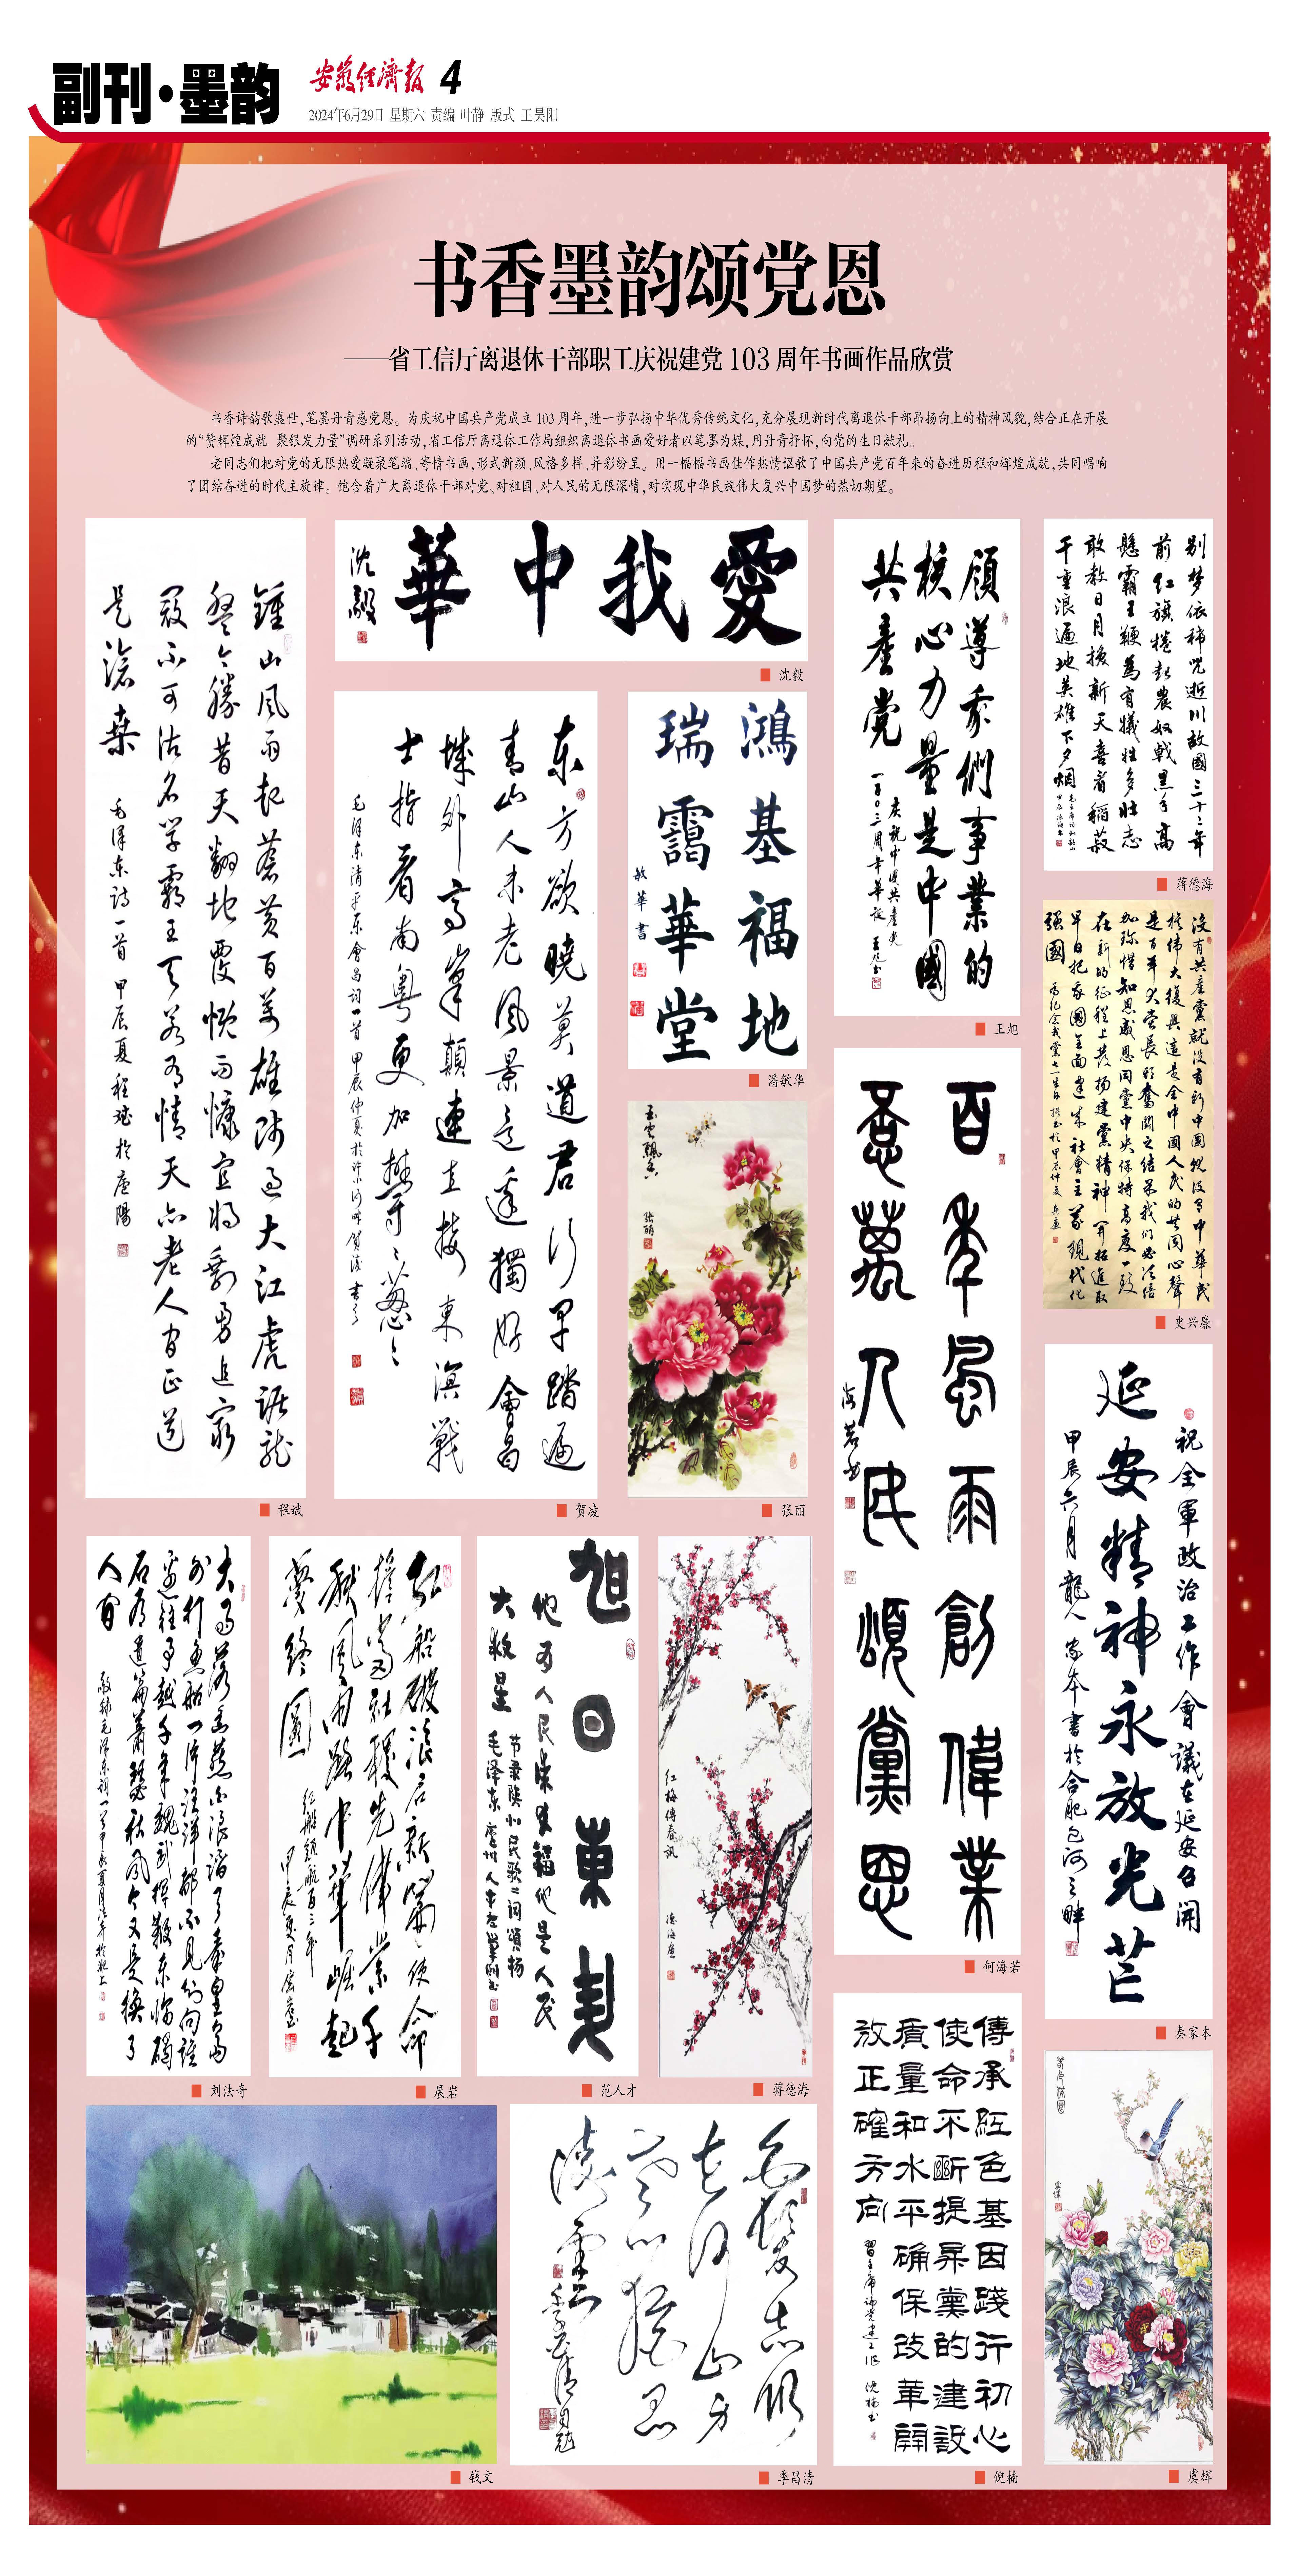 副刊·墨韵
安徽经济报 4
2024年6月29日 星期六 责编 叶静 版式 王昊阳
书香墨韵颂党恩
——省工信厅离退休干部职工庆祝建党 103 周年书画作品欣赏
书香诗韵歌盛世,笔墨丹青感党恩。为庆祝中国共产党成立 103 周年,进一步弘扬中华优秀传统文化,充分展现新时代离退休干部昂扬向上的精神风貌,结合正在开展
的“赞辉煌成就 聚银发力量”调研系列活动,省工信厅离退休工作局组织离退休书画爱好者以笔墨为媒,用丹青抒怀,向党的生日献礼。
老同志们把对党的无限热爱凝聚笔端、寄情书画,形式新颖、风格多样、异彩纷呈。用一幅幅书画佳作热情讴歌了中国共产党百年来的奋进历程和辉煌成就,共同唱响
了团结奋进的时代主旋律。饱含着广大离退休干部对党、对祖国、对人民的无限深情,对实现中华民族伟大复兴中国梦的热切期望。
鍾山風雨起蒼黄百萬雄师过大江虎踞龙
盘今勝昔天翻地覆慨而慷宜将剩勇追窮
寇不可沽名学霸王天若有情天亦老人间正道
是滄桑
毛泽东诗一首 甲辰夏 程斌於庐陽
程斌
愛我中華
沈毅
沈毅
东方欲曉莫道君行早踏遍
青山人未老風景这邊獨好會昌
城外高峯顛連直接東溟戰
士指看南粤更加鬱鬱葱葱
毛泽东清平乐會昌词一首 甲辰仲夏
贺凌
鴻基福地
瑞靄華堂
敏華書
潘敏华
领導我們事業的
核心力量是中國
共產党
庆祝中國共產党
一百0三周年華誕 王旭书
王旭
别梦依稀咒逝川故國三十二年
前红旗捲起農奴戟黑手高
懸霸王鞭為有犧牲多壮志
敢教日月换新天喜看稻菽
千重浪遍地英雄下夕烟
蒋德海
没有共產黨就没有新中國
强國
史兴廉
玉堂飄香
张丽
张丽
百年風雨創偉業
億萬人民頌黨恩
海若书
何海若
祝全軍政治工作會議在延安召開
延安精神永放光芒
甲辰六月 龍人 家本書於合肥包河之畔
秦家本
大雨落幽燕白浪滔天秦皇岛
外打鱼船一片汪洋都不见知向谁
边往事越千年魏武揮鞭东临碣
石有遺篇蕭瑟秋風今又是换了
人间
刘法奇
红船破浪启新篇使命
擔當社稷先偉業千
秋風雨路中華崛起
夢终圆
红船领航百三年
甲辰夏月
展岩
旭日東升
他为人民谋幸福他是人民
大救星
节录陕北民歌
范人才
红梅傳春訊
德海畫
蒋德海
钱文
季昌清
傳承紅色基因踐行初心
使命不斷提昇黨的建設
質量和水平确保改革開
放正確方向
倪楠
虞辉